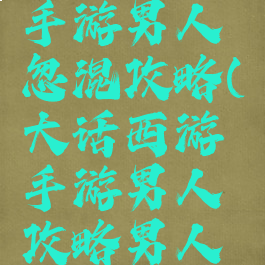 手游男人
忽混攻略(
大话西游
手游男人
攻略男人